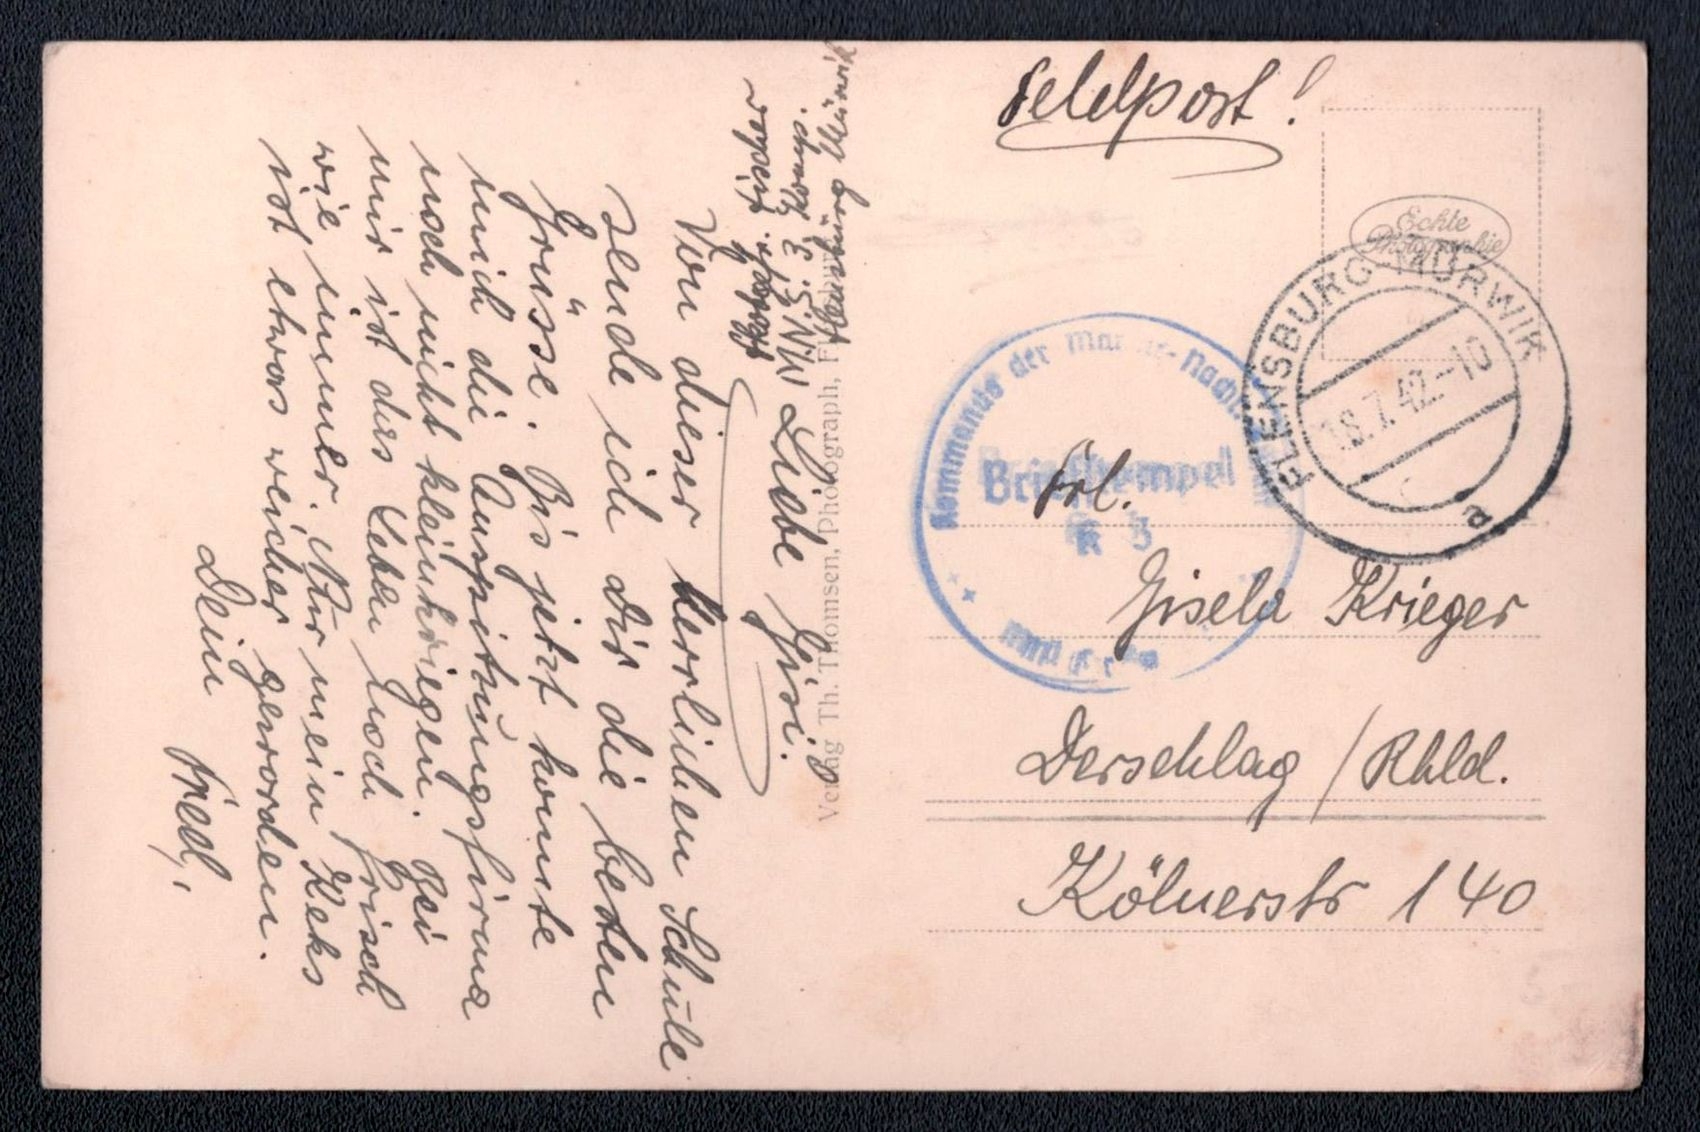 Feldpost!
Echte
Photographie
FLENSBURG-MÜRWIK
18.7.42.-10
e
Kommando der Marine-Nachr.
Briefstempel
Frl.
Gisela Krieger
Derschlag / Rhld.
Kölnerstr 140
Verlag Th. Thomsen, Photograph, Flensburg
Flensburg Mürwik
Liebe Gisi!
Von dieser herrlichen Schule
sende ich Dir die besten
Grüsse. Bis jetzt konnte
mich die Ausbeutungsfirma
noch nicht kleinkriegen. Bei
mir ist das Leben noch frisch
wie immer. Nur mein Keks
ist etwas weicher geworden.
Dein
Fried,